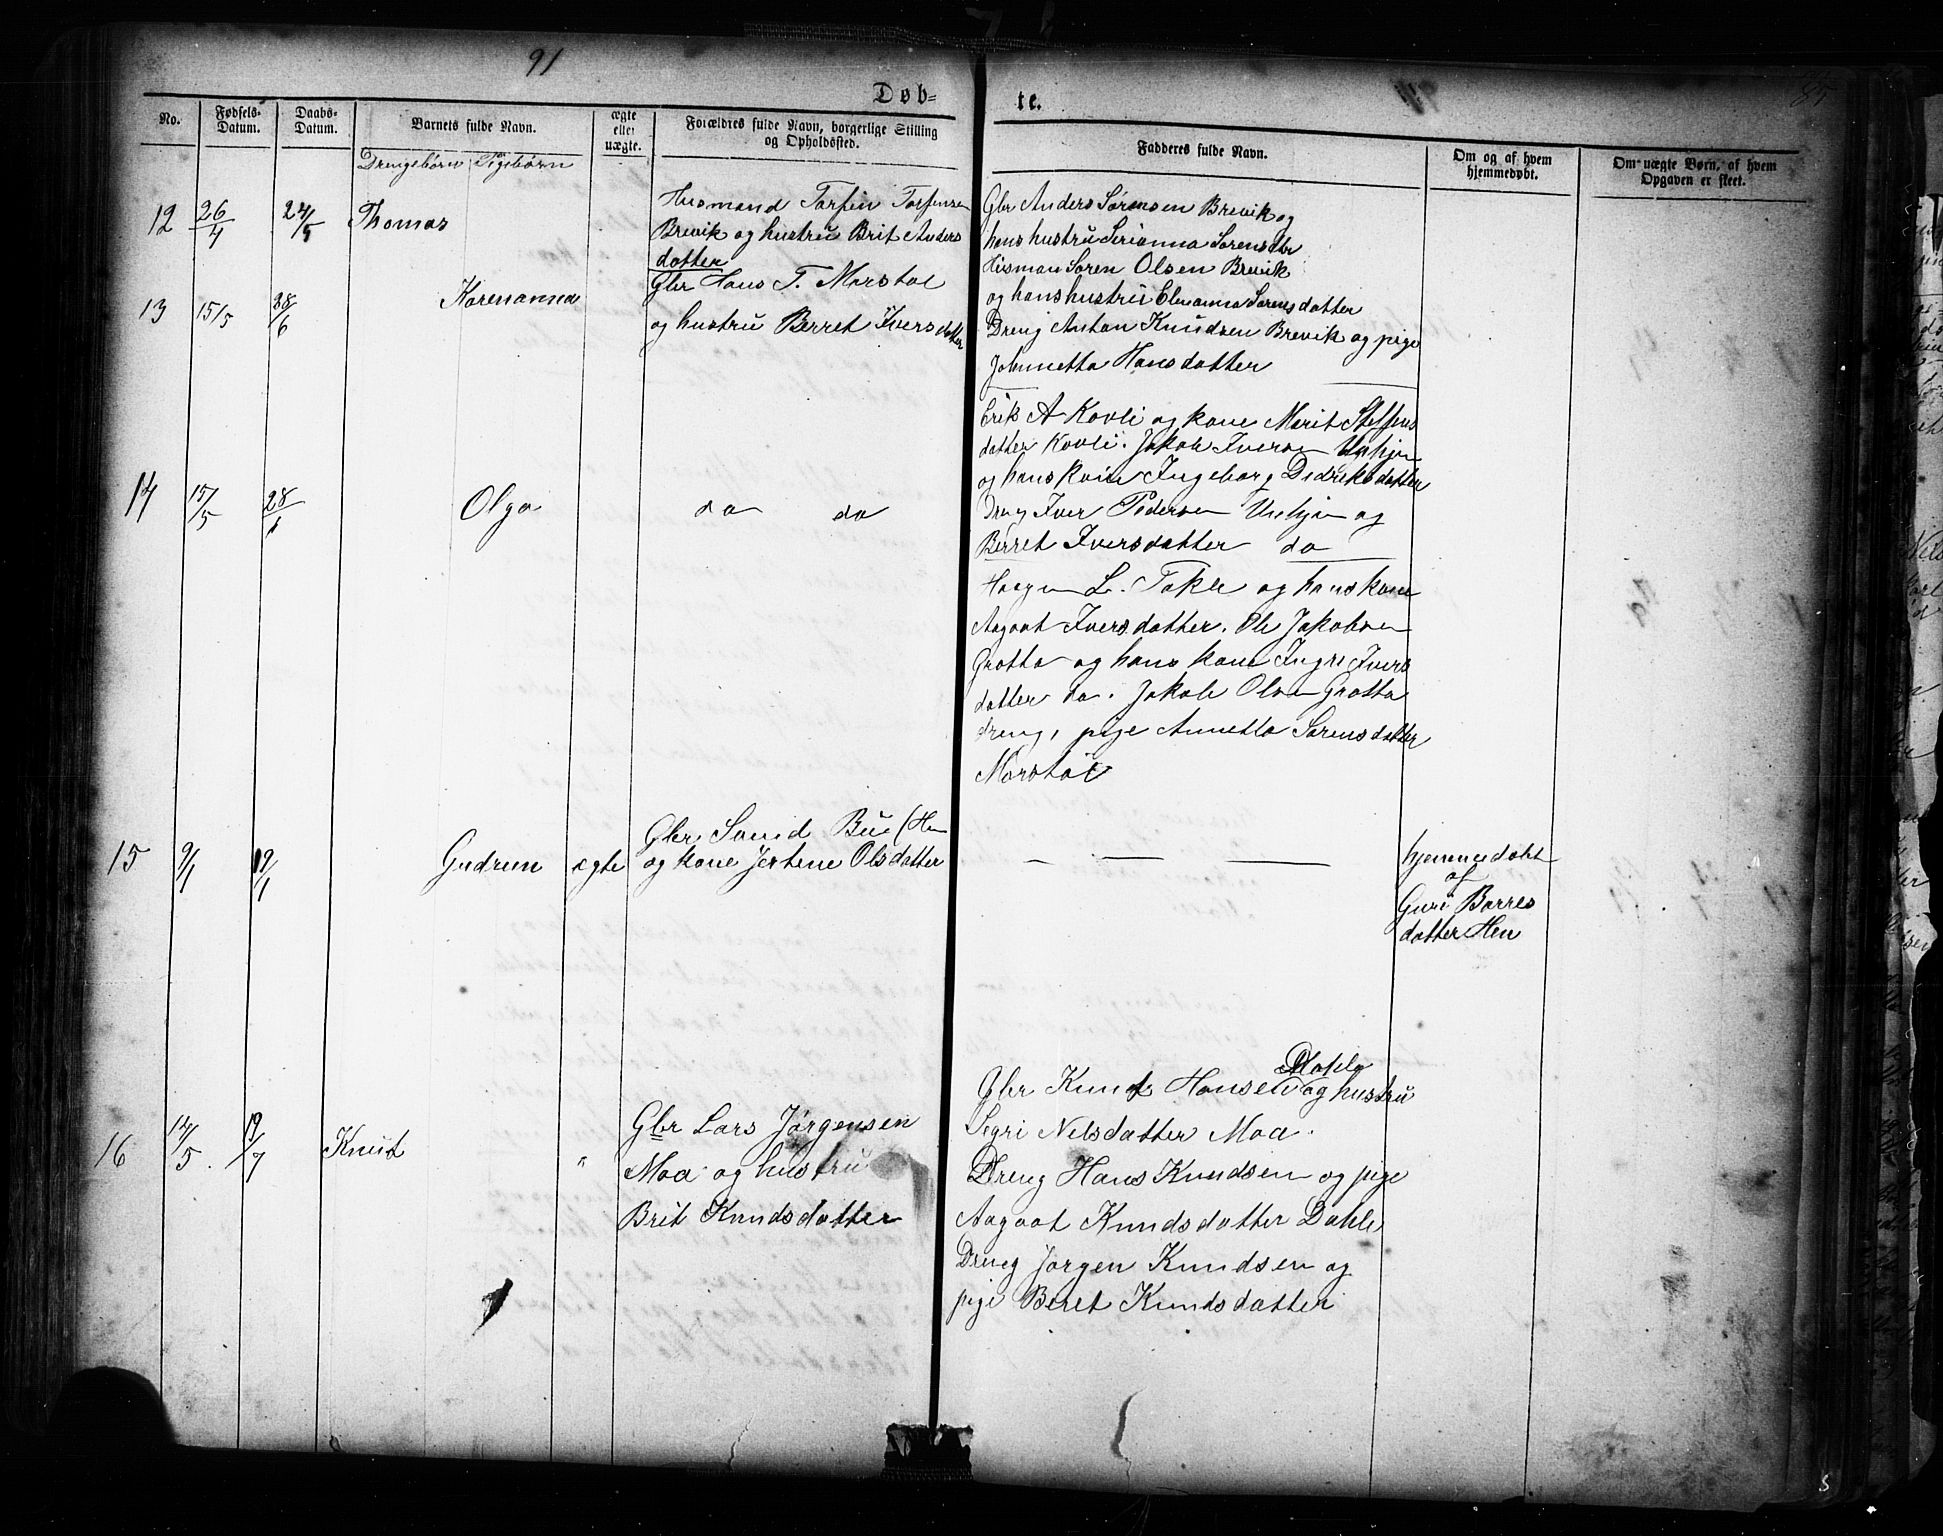 91
85
Døb-
te.
No.
Fødsels-
Datum.
Daabs-
Datum.
Barnets fulde Navn.
Drengebørn Pigebørn
ægte
eller
uægte.
Forældres fulde Navn, borgerlige Stilling
og Opholdssted.
Fadderes fulde Navn.
Om og af hvem
hjemmedøbt.
Om uægte Børn, af hvem
Opgaven er skeet.
12 26/4 24/5 Thomas
Husmand Torfin Torfinsen
Brevik og hustru Brit Anders
datter
Gbr Anders Sørensen Brevik og
hans hustru Serianna Sorensdtr
Husman Soren Olsen Brevik
og hans hustru Elenanna Sorensdatter
Dreng Anton Knudsen Brevik og pige
Johnnetta Hansdatter
13 15/5 28/6 Karenanna
Gbr Hans T. Morstøl
og hustru Berret Iversdatter
Erik A Kovli og kone Marit Steffens
datter Kovli. Jakob Iversen
og hans kone Ingeborg Didriksdatter
Dreng Iver Pedersen og
Berret Iversdatter do
14 15/5 28/6 Olga do do
L. Takle og hans kone
Aagoot Iversdatter. Ole Jakobsen
Grotta og hans kone Ingri Ivers
datter do. Jakob Olsen Grotta
dreng, pige Annetta Sorensdatter
Morstøl
15 9/1 19/1 Gudrun ægte
Gbr Svend Bue (Hen
og kone Jertine Olsdatter
— — —
hjemmedøbt
af
Guri Barres
datter Hen
16 14/5 19/7 Knut "
Gbr Lars Jørgensen
Moa og hustru
Brit Knudsdatter
Dahle
Gbr Knut Hansen og hustru
Sigri Nilsdatter Moa.
Dreng Hans Knudsen og pige
Aagoot Knudsdatter Dahle
Dreng Jørgen Knudsen og
pige Beret Knudsdatter